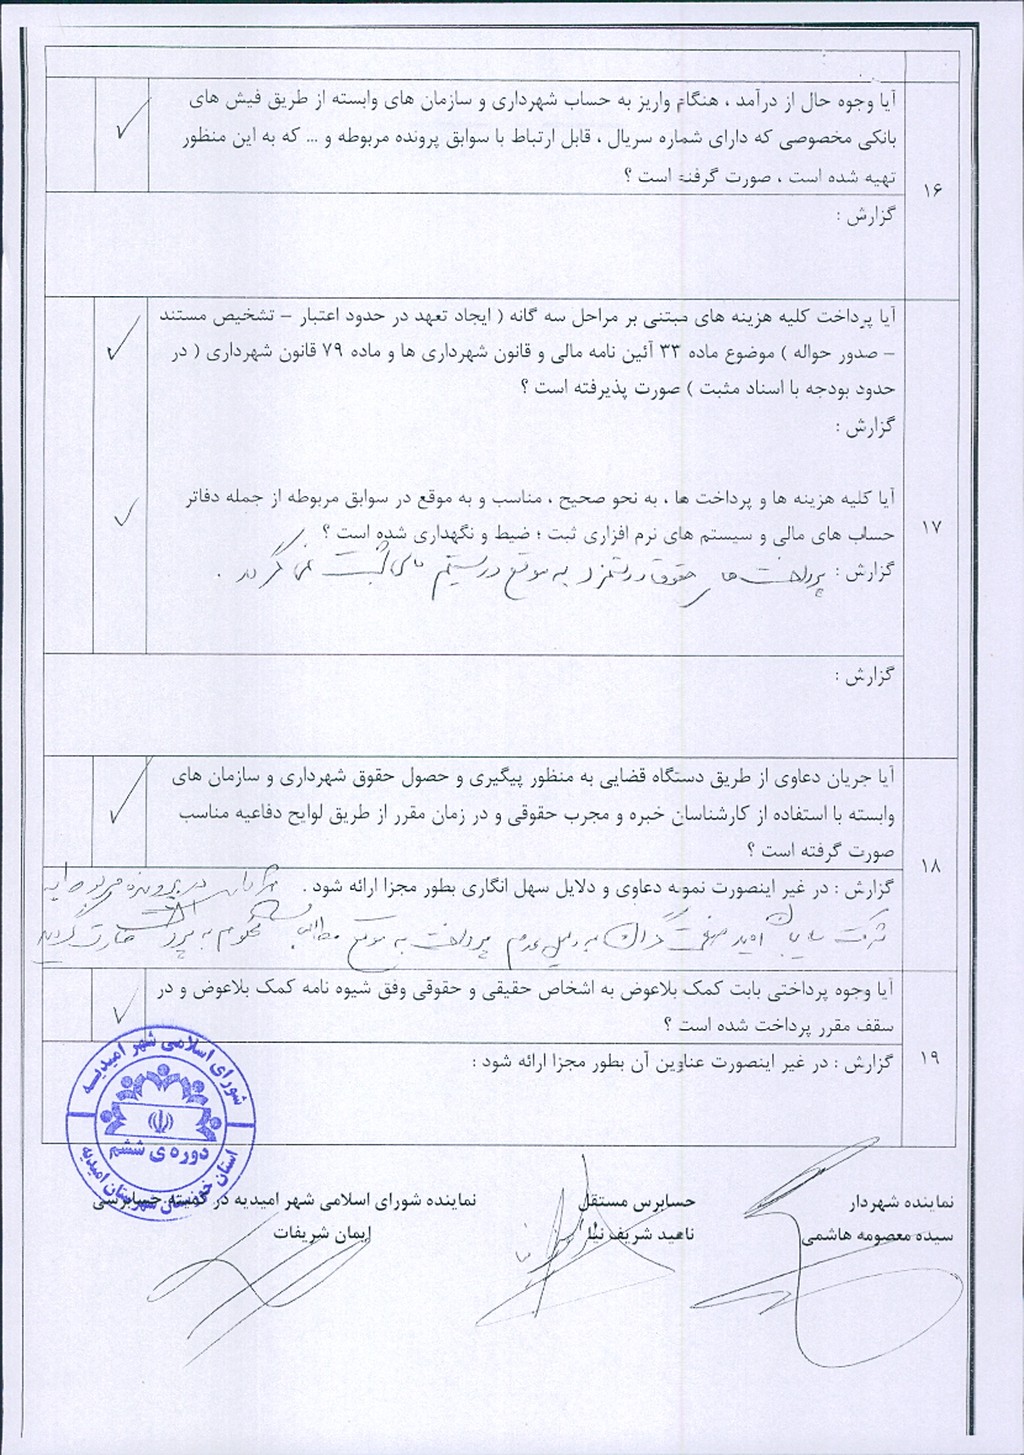 آیا وجوه حال از درآمد ، هنگام واریز به حساب شهرداری و سازمان های وابسته از طریق فیش های
بانکی مخصوصی که دارای شماره سریال ، قابل ارتباط با سوابق پرونده مربوطه و ... که به این منظور
تهیه شده است ، صورت گرفته است ؟
۱۶
گزارش :
آیا پرداخت کلیه هزینه های مبتنی بر مراحل سه گانه ( ایجاد تعهد در حدود اعتبار – تشخیص مستند
– صدور حواله ) موضوع ماده ۳۳ آئین نامه مالی و قانون شهرداری ها و ماده ۷۹ قانون شهرداری ( در
حدود بودجه با اسناد مثبت ) صورت پذیرفته است ؟
گزارش :
آیا کلیه هزینه ها و پرداخت ها ، به نحو صحیح ، مناسب و به موقع در سوابق مربوطه از جمله دفاتر
۱۷
حساب های مالی و سیستم های نرم افزاری ثبت ؛ ضبط و نگهداری شده است ؟
گزارش : پرداخت های حقوق و دستمزد به موقع در سیستم مالی ثبت نمی گردد .
گزارش :
آیا جریان دعاوی از طریق دستگاه قضایی به منظور پیگیری و حصول حقوق شهرداری و سازمان های
وابسته با استفاده از کارشناسان خبره و مجرب حقوقی و در زمان مقرر از طریق لوایح دفاعیه مناسب
صورت گرفته است ؟
۱۸
گزارش : در غیر اینصورت نمونه دعاوی و دلایل سهل انگاری بطور مجزا ارائه شود . در پرونده
شرکت امید به دلیل عدم پرداخت به موقع مطالبات محکوم به پرداخت خسارت گردید
آیا وجوه پرداختی بابت کمک بلاعوض به اشخاص حقیقی و حقوقی وفق شیوه نامه کمک بلاعوض و در
سقف مقرر پرداخت شده است ؟
۱۹
گزارش : در غیر اینصورت عناوین آن بطور مجزا ارائه شود :
شورای اسلامی شهر امیدیه
دوره ی ششم
استان خوزستان شهرستان امیدیه
نماینده شهردار
سیده معصومه هاشمی
حسابرس مستقل
ناهید شریف نیا
نماینده شورای اسلامی شهر امیدیه در کمیته حسابرسی
ایمان شریفات